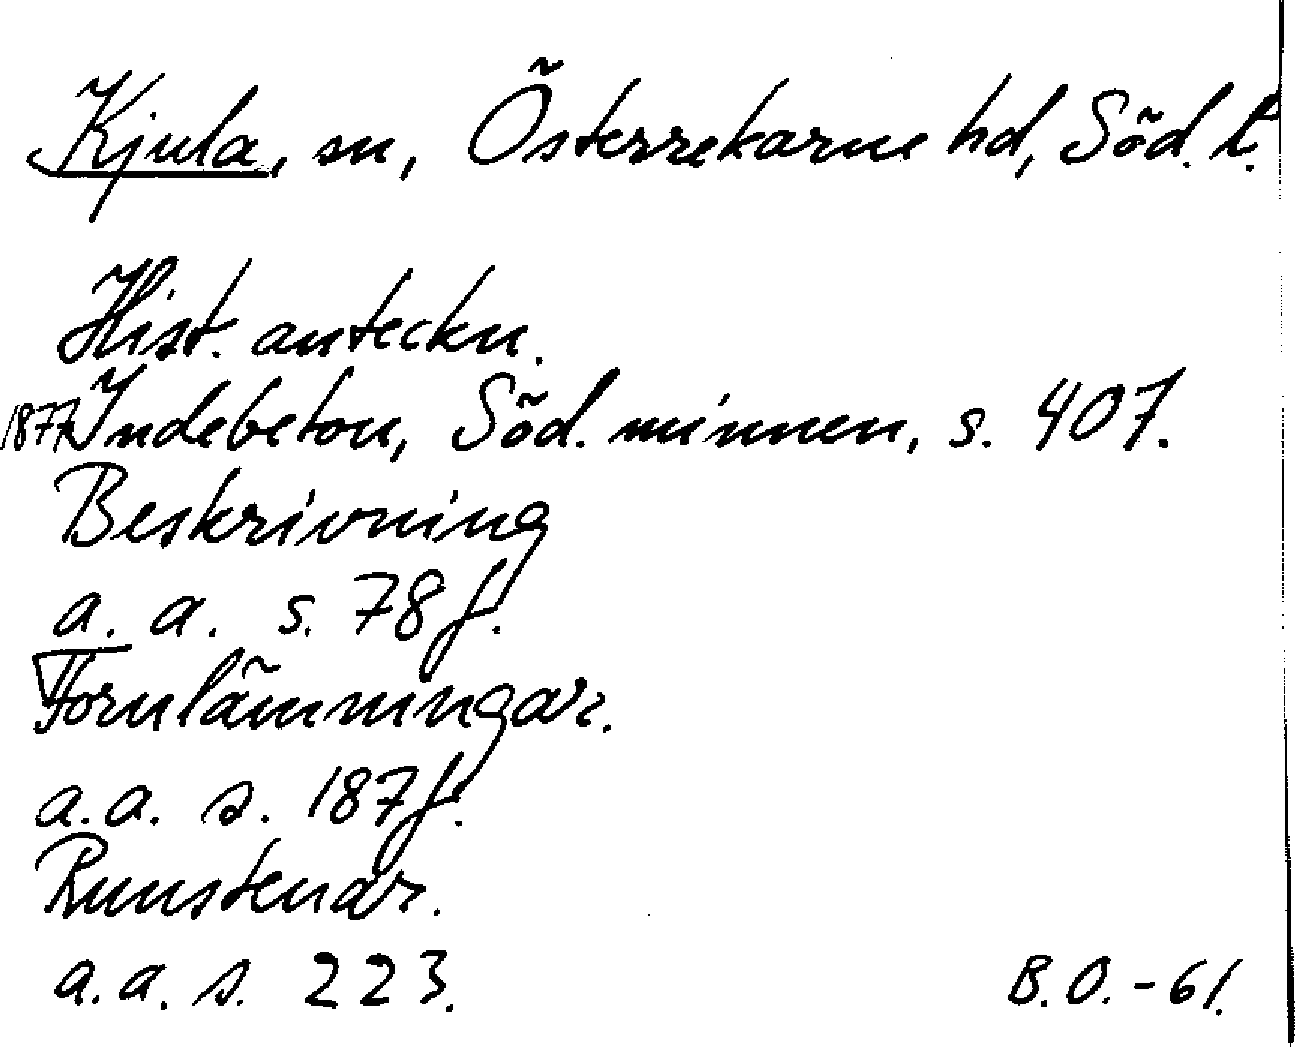 Kjula, sn, Österrekarne hd, Söd. l.
Hist. anteckn.
1877. Indebetou, Söd. minnen, s. 407.
Beskrivning
a. a. s. 78 f.
Fornlämningar.
a.a. s. 187 f.
Runstenar.
a.a. s. 223.
B.O. - 61.